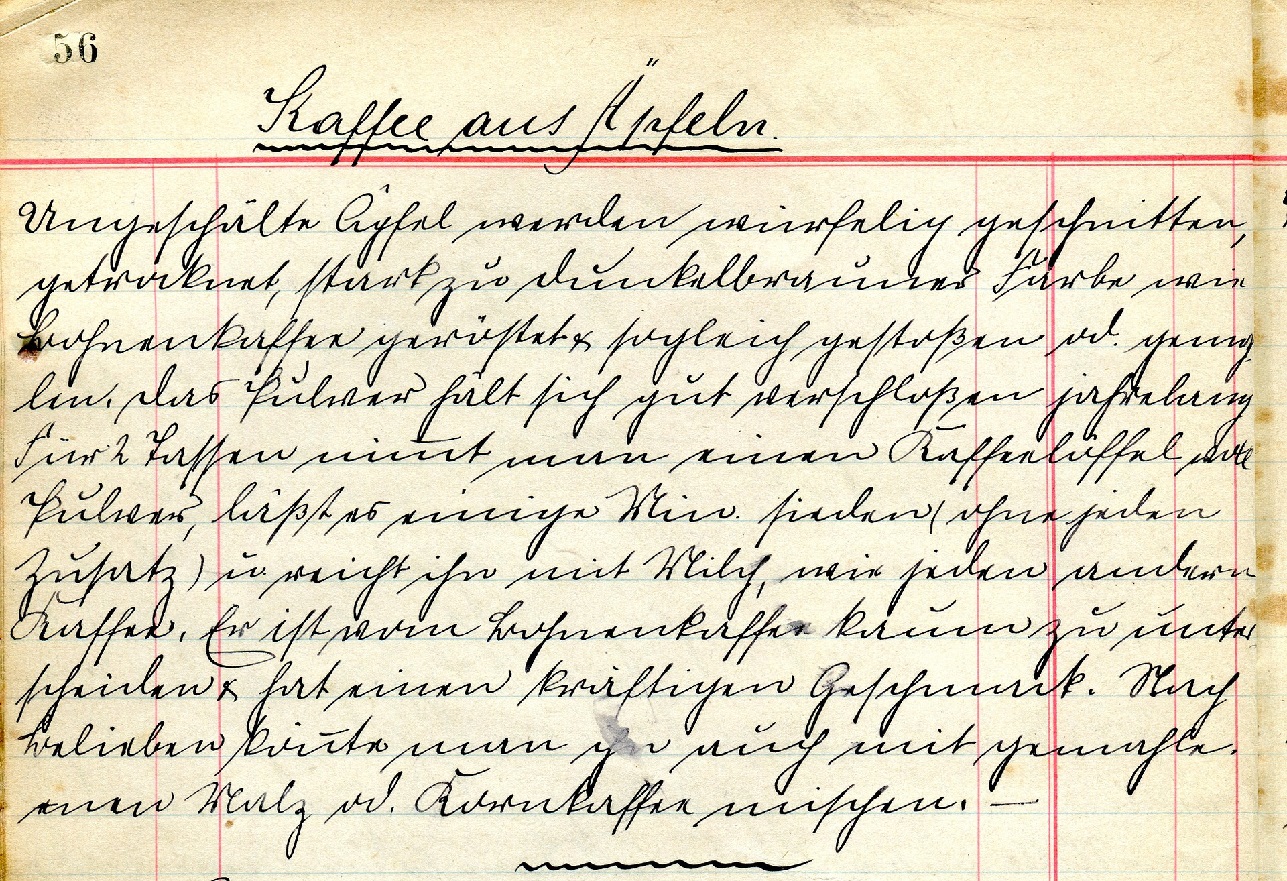 56
Kaffee aus Äpfeln.
Ungeschälte Äpfel werden würfelig geschnitten,
getrocknet, stark zu dunkelbrauner Farbe wie
Bohnenkaffee geröstet & sogleich gestoßen od. gemah
len. Das Pulver hält sich gut verschloßen jahrelang
Für 2 Tassen nim̅t man einen Kaffeelöffel voll
Pulver, läßt es einige Min. sieden (ohne jeden
Zusatz) u. reicht ihn mit Milch, wie jeden andern
Kaffee. Er ist vom Bohnenkaffee kaum zu unter
scheiden & hat einen kräftigen Geschmack. Nach
Belieben kön̅te man auch mit gemahle.
enen Malz od. Kornkaffee mischen. —